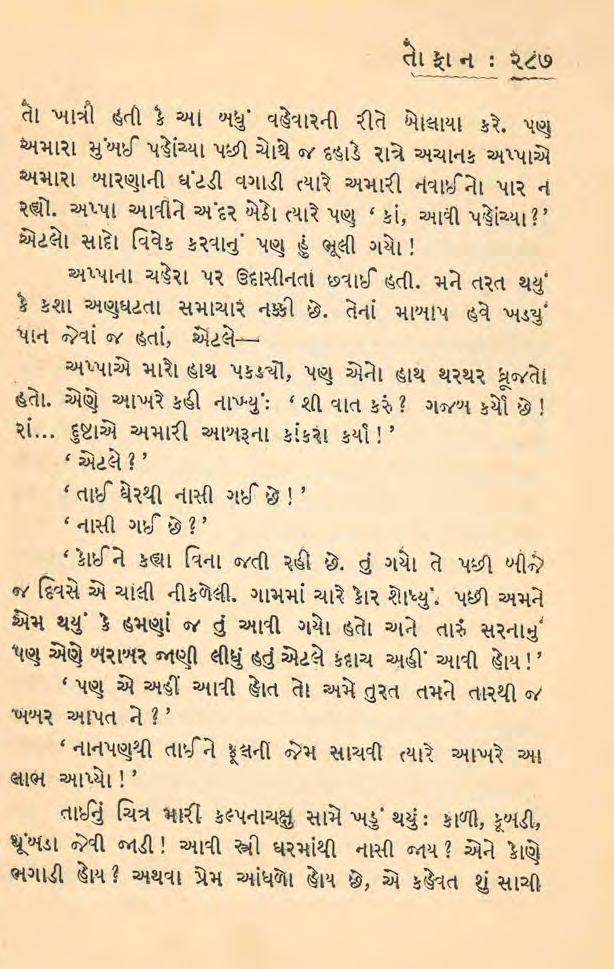 તોફાન : ૨૮૭
તો ખાત્રી હતી કે આ બધું વહેવારની રીતે બોલાયા કરે. પણ
અમારા મુંબઈ પહોંચ્યા પછી ચોથે જ દહાડે રાત્રે અચાનક અપ્પાએ
અમારા બારણાની ઘંટડી વગાડી ત્યારે અમારી નવાઈનો પાર ન
રહ્યો. અપ્પા આવીને અંદર બેઠો ત્યારે પણ ‘ કાં, આવી પહોંચ્યા?’
એટલો સાદો વિવેક કરવાનું પણ હું ભૂલી ગયો !
અપ્પાના ચહેરા પર ઉદાસીનતા છવાઈ હતી. મને તરત થયું
કે કશા અણઘટતા સમાચાર નક્કી છે. તેનાં માબાપ હવે ખડયું
પાન જેવાં જ હતાં, એટલે—
અપ્પાએ મારો હાથ પકડયો, પણ એનો હાથ થરથર ધ્રૂજતો
હતો. એણે આખરે કહી નાખ્યું: ‘ શી વાત કરું? ગજબ કર્યો છે !
રાં... દુષ્ટાએ અમારી આબરૂના કાંકરા કર્યા ! ’
‘ એટલે ? ’
‘ તાઈ ઘેરથી નાસી ગઈ છે ! ’
‘ નાસી ગઈ છે ? ’
‘ કોઈને કહ્યા વિના જતી રહી છે. તું ગયો તે પછી બીજે
જ દિવસે એ ચાલી નીકળેલી. ગામમાં ચારે કોર શોધ્યું. પછી અમને
એમ થયું કે હમણાં જ તું આવી ગયો હતો અને તારું સરનામું
પણ એણે બરાબર જાણી લીધું હતું એટલે કદાચ અહીં આવી હોય ! ’
‘ પણ એ અહીં આવી હોત તો અમે તુરત તમને તારથી જ
ખબર આપત ને ? ’
‘ નાનપણથી તાઈને ફૂલની જેમ સાચવી ત્યારે આખરે આ
લાભ આપ્યો ! ’
તાઈનું ચિત્ર મારી કલ્પનાચક્ષુ સામે ખડું થયું : કાળી, કૂબડી,
થૂંબડા જેવી જાડી ! આવી સ્ત્રી ઘરમાંથી નાસી જાય ? એને કોણે
ભગાડી હોય ? અથવા પ્રેમ આંધળો હોય છે, એ કહેવત શું સાચી